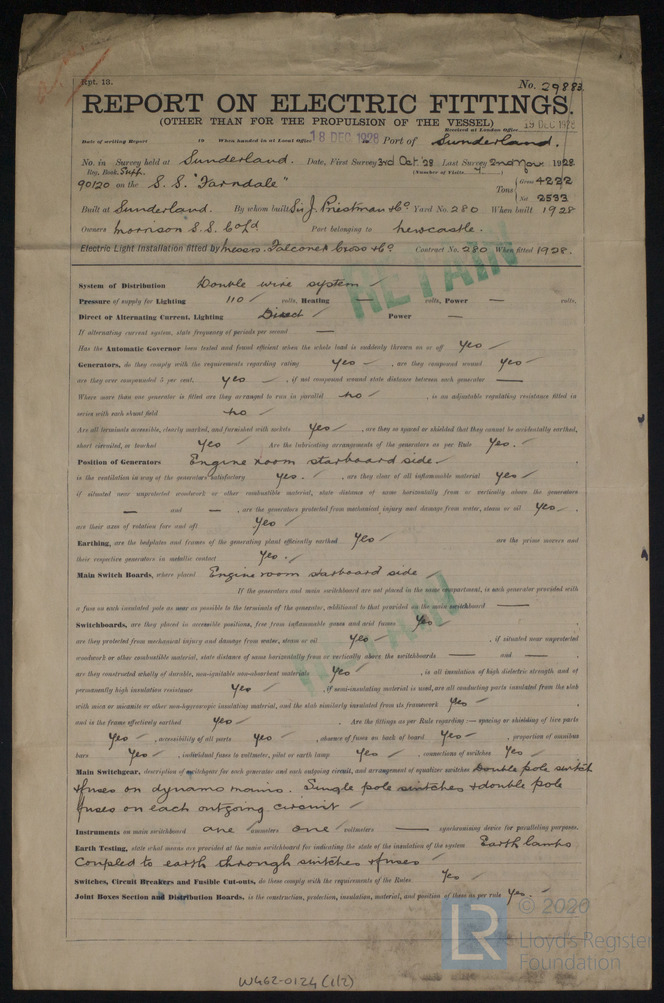 Rpt. 13.
No. 29883
REPORT ON ELECTRIC FITTINGS.
(OTHER THAN FOR THE PROPULSION OF THE VESSEL)
Received at London Office 19 DEC 1928
Date of writing Report 19 When handed in at Local Office 18 DEC 1928 Port of Sunderland.
No. in Survey held at Sunderland. Date, First Survey 3rd Oct '28 Last Survey 2nd Nov. 1928
Reg. Book. Supp. (Number of Visits 4)
90120 on the S.S. "Farndale" Tons { Gross 4222
Net 2533
Built at Sunderland. By whom built Sir J. Priestman & Co Yard No. 280 When built 1928
Owners Morrison S.S. Co Ld Port belonging to Newcastle.
Electric Light Installation fitted by Messrs. Falconer Cross & Co Contract No. 280 When fitted 1928.
RETAIN
System of Distribution Double wire system
Pressure of supply for Lighting 110 volts, Heating — volts, Power — volts,
Direct or Alternating Current, Lighting Direct Power —
If alternating current system, state frequency of periods per second —
Has the Automatic Governor been tested and found efficient when the whole load is suddenly thrown on or off Yes
Generators, do they comply with the requirements regarding rating Yes, are they compound wound Yes
are they over compounded 5 per cent. Yes, if not compound wound state distance between each generator —
Where more than one generator is fitted are they arranged to run in parallel No, is an adjustable regulating resistance fitted in
series with each shunt field No
Are all terminals accessible, clearly marked, and furnished with sockets Yes, are they so spaced or shielded that they cannot be accidentally earthed,
short circuited, or touched Yes Are the lubricating arrangements of the generators as per Rule Yes.
Position of Generators Engine room starboard side
is the ventilation in way of the generators satisfactory Yes., are they clear of all inflammable material Yes
if situated near unprotected woodwork or other combustible material, state distance of same horizontally from or vertically above the generators
— and —, are the generators protected from mechanical injury and damage from water, steam or oil Yes,
are their axes of rotation fore and aft Yes
Earthing, are the bedplates and frames of the generating plant efficiently earthed Yes are the prime movers and
their respective generators in metallic contact Yes.
Main Switch Boards, where placed Engine room starboard side
If the generators and main switchboard are not placed in the same compartment, is each generator provided with
a fuse on each insulated pole as near as possible to the terminals of the generator, additional to that provided on the main switchboard —
Switchboards, are they placed in accessible positions, free from inflammable gases and acid fumes Yes
are they protected from mechanical injury and damage from water, steam or oil Yes, if situated near unprotected
woodwork or other combustible material, state distance of same horizontally from or vertically above the switchboards — and —,
RETAIN
are they constructed wholly of durable, non-ignitable non-absorbent materials Yes, is all insulation of high dielectric strength and of
permanently high insulation resistance Yes, if semi-insulating material is used, are all conducting parts insulated from the slab
with mica or micanite or other non-hygroscopic insulating material, and the slab similarly insulated from its framework Yes
and is the frame effectively earthed Yes. Are the fittings as per Rule regarding :— spacing or shielding of live parts
Yes, accessibility of all parts Yes, absence of fuses on back of board Yes, proportion of omnibus
bars Yes, individual fuses to voltmeter, pilot or earth lamp Yes, connections of switches Yes
Main Switchgear, description of switchgear for each generator and each outgoing circuit, and arrangement of equalizer switches Double pole switch
& fuses on dynamo mains. Single pole switches & double pole
fuses on each outgoing circuit
Instruments on main switchboard one ammeters one voltmeters — synchronising device for paralleling purposes.
Earth Testing, state what means are provided at the main switchboard for indicating the state of the insulation of the system Earth lamps
Coupled to earth through switches & fuses
Switches, Circuit Breakers and Fusible Cut-outs, do these comply with the requirements of the Rules Yes
Joint Boxes Section and Distribution Boards, is the construction, protection, insulation, material, and position of these as per rule Yes.
LR
© 2020
Lloyd's Register
Foundation
W462-0124 (1/2)